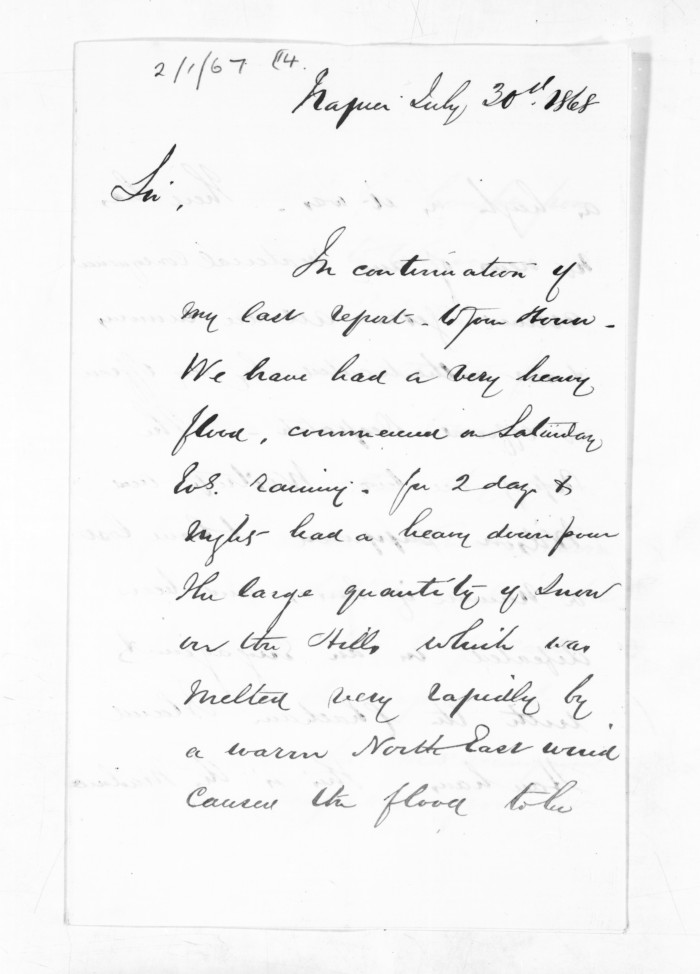 2/1/67 114.
Napier July 30th. 1868
Sir,
In continuation of
my last report - to your Honor -
We have had a very heavy
flood, commenced on Saturday
Evg. raining. for 2 days &
nights had a heavy down pour
the large quantity of Snow
on the Hills which was
melted very rapidly by
a warm North East wind
caused the flood to be